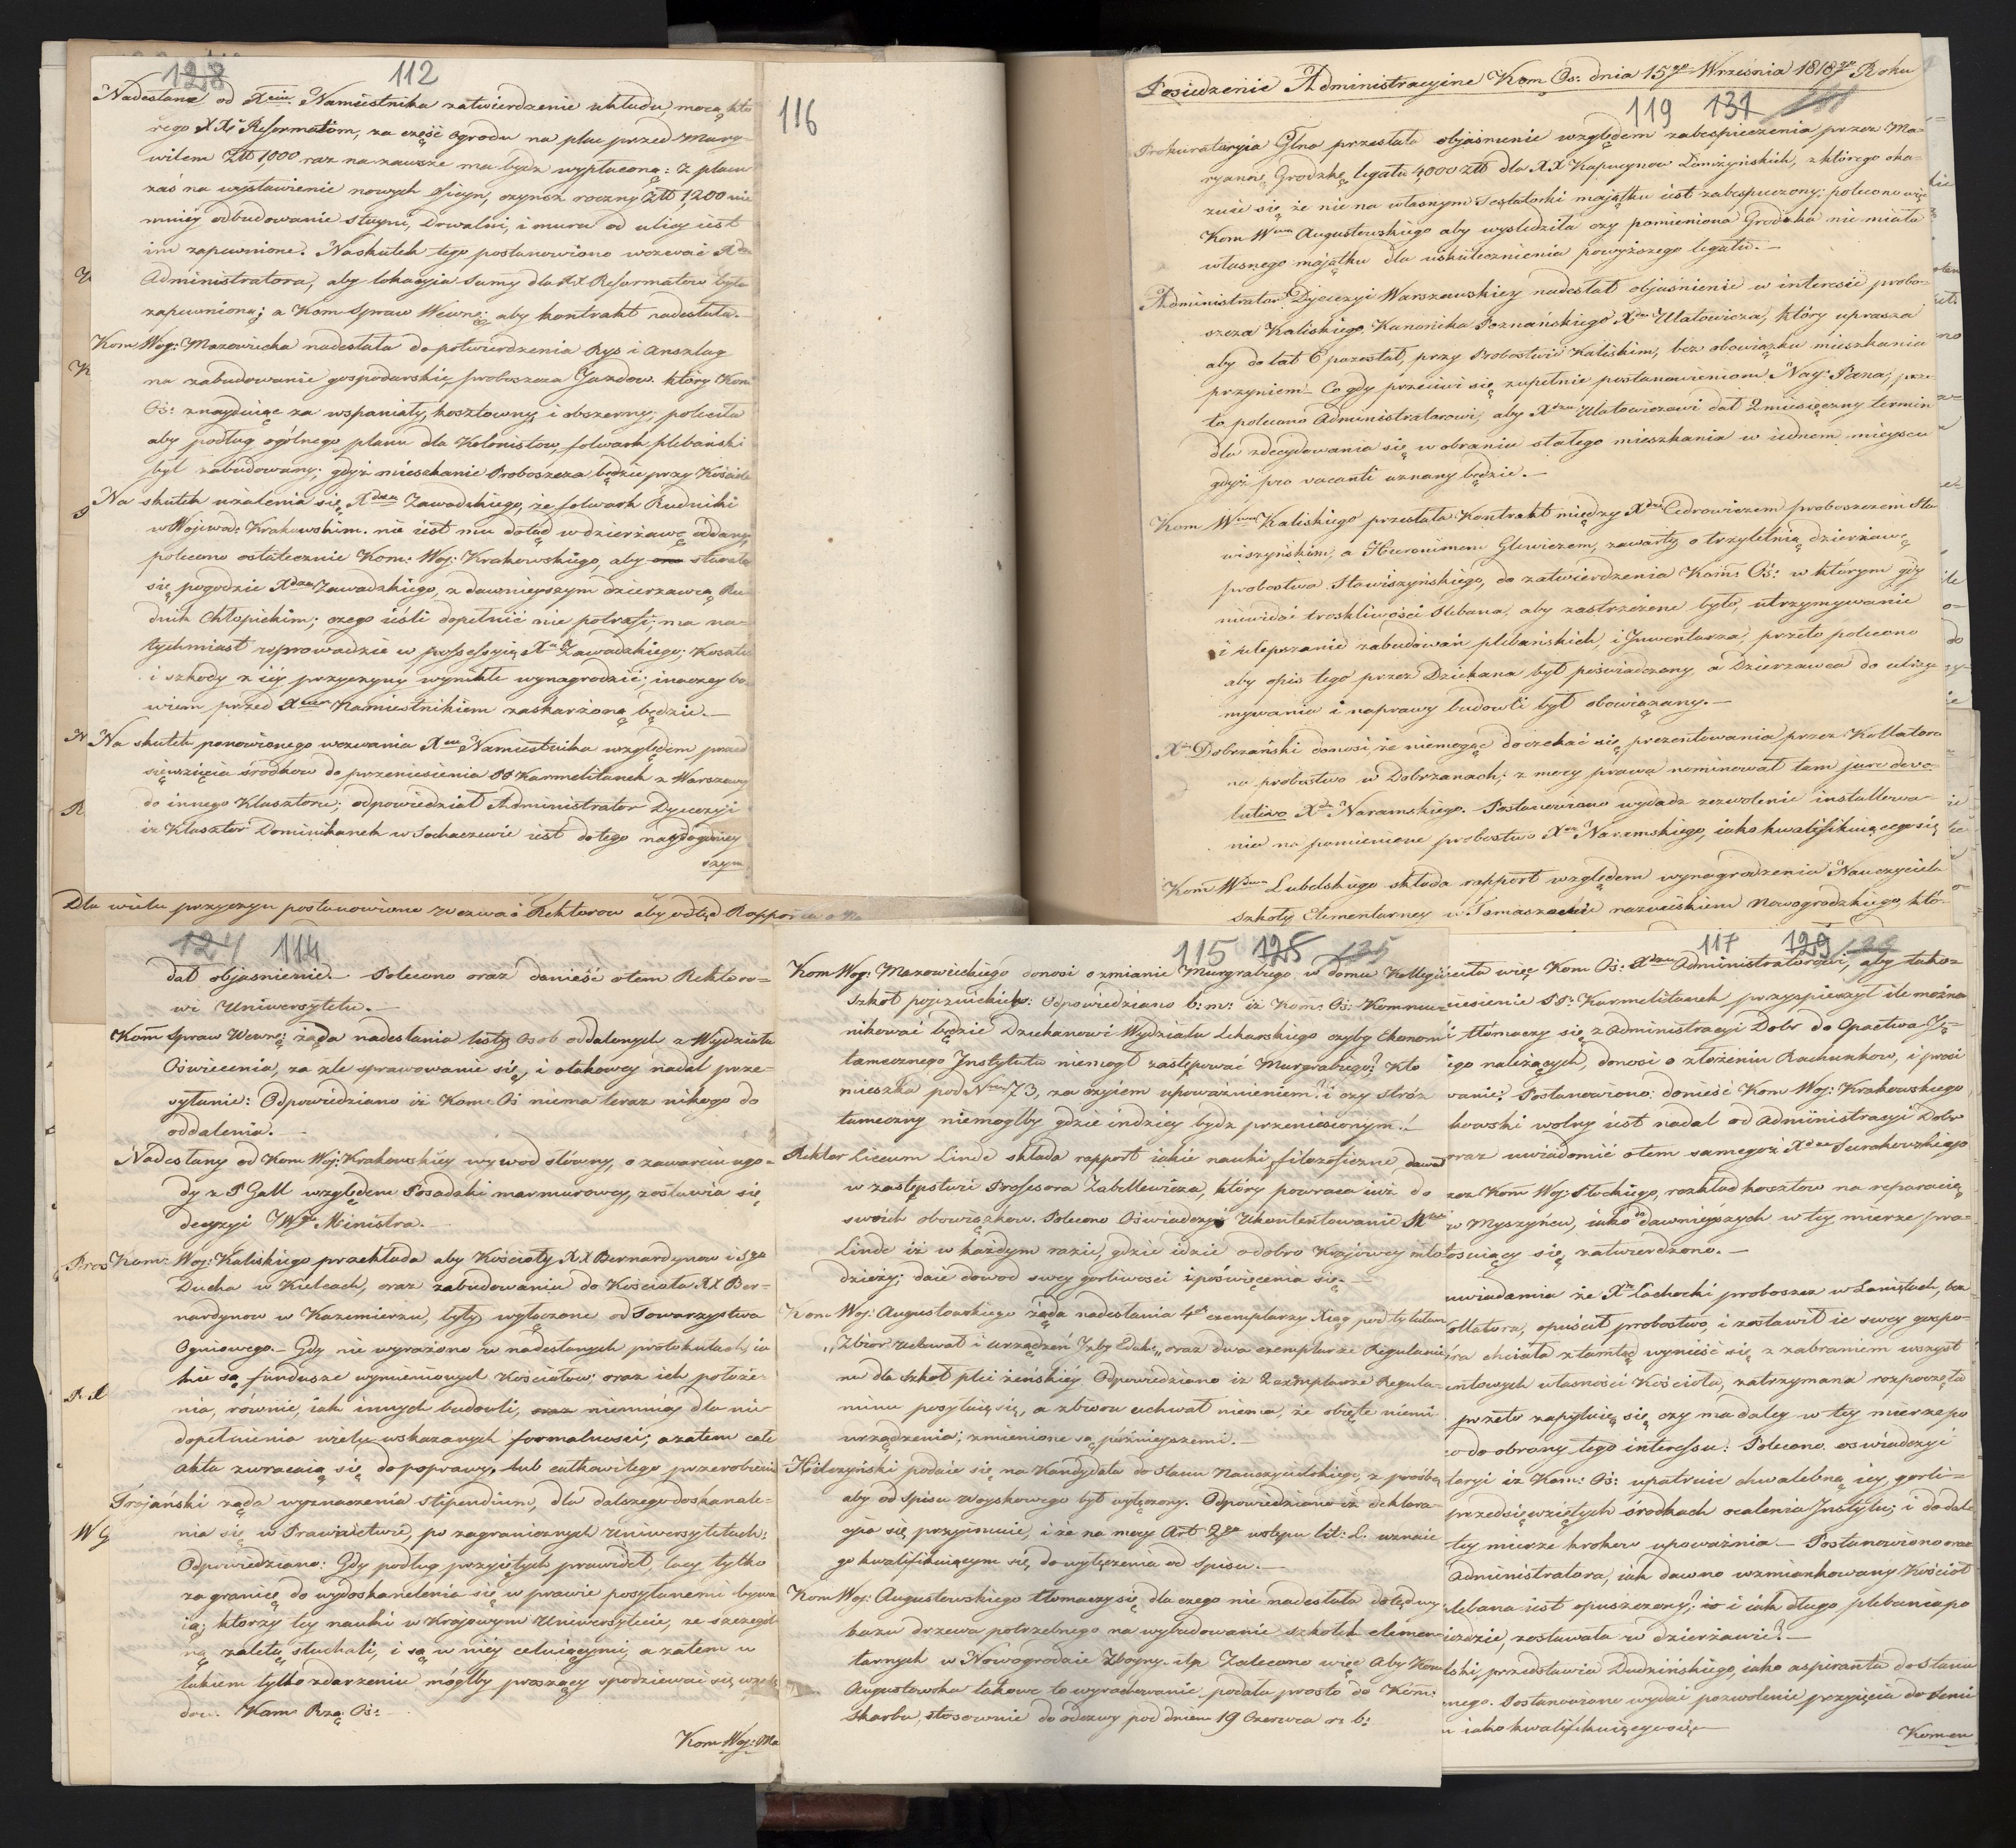 128 112
Nadesłane od Xcia Namiestnika zatwierdzenie układu, mocą któ
rego XX. Reformatom, za część ogrodu na plac przed Mary-
wilem Złł 1,000 raz na zawsze ma bydź wypłacona: Z placu
zaś na wystawienie nowych oficyn, czynsz roczny Złł 1,200 nie
mniéy odbudowanie stayni, Drwalni, i muru od ulicy iest
im zapewnione. Naskutek tego postanowiono wezwać Xdza
Administratora, aby lokacyia Sumy dla XX Reformatow była
zapewniona; a Kom. Spraw Wewnę: aby kontrakt nadesłała.
Kom Woy: Mazowiecka nadesłała do potwierdzenia Rys i Anszlag
na zabudowanie gospodarskie proboszcza Jazdow. który Kom
Oś: znayduiąc za wspaniały, kosztowny i obszerny; poleciła
aby podług ogólnego planu dla Kolonistow, folwark plebański
był zabudowany; gdyż mieszkanie Proboszcza będzie przy Kościele
Na skutek użalenia się Xdza Zawadzkiego, że folwark Rudniki
w Wojewod: Krakowskim. nie iest mu dotąd w dzierżawę oddany,
polecono ostatecznie Kom: Woj: Krakowskiego, aby starała
się pogodzić Xdza Zawadzkiego, z dawnieyszym dzierżawcą Ru-
dnik Chłopickim; czego ieśli dopełnić nie potrafi; ma na-
tychmiast wprowadzić w possessyią Xa Zawadzkiego; Koszta
i szkody z iéy przyczyny wynikłe wynagrodzić; inaczey bo-
wiem przed Xciem Namiestnikiem zaskarżoną będzie.
Na skutek ponowionego wezwania Xcia Namiestnika względem przed
sięwzięcia środkow do przeniesienia PP Karmelitanek z Warszawy
do innego Klasztoru; odpowiedział Administrator Dyecezyi
iż Klasztor Dominikanek w Sochaczewie iest do tego naydogodniey
szym
116
Dla wielu przyczyn postanowiono wezwać Rektorow aby odtąd Rapporta
Posiedzenie Administracyine Kom Oś: dnia 15go Września 1818go Roku
119 131
Prokuratoryia Glna przesłała objaśnienie względem zabespieczenia przez Ma-
ryannę Grodzką legatu 4000 złł dla XX Kapucynow Łomżyńskich, z którego oka-
zuie się że nie na własnym Testatorki maiątku iest zabespieczony; polecono więc
Kom Wwa Augustowskiego aby wyśledziła czy pomieniona Grodzka nie miała
własnego maiątku dla uskutecznienia powyższego legatu.
Administrator Dyecezyi Warszawskiey nadesłał objaśnienie w interesie probo-
szcza Kaliskiego, Kanonika Poznańskiego Xdza Ulatowicza, który uprasza
aby do lat 6 pozostał, przy Probostwie Kaliskim, bez obowiązku mieszkania
przyniem. Co gdy przeciwi się zupełnie postanowieniom Nay: Pana; prze-
to polecono Administratorowi, aby Xdzu Ulatowiczowi dał 2 miesięczny termin
dla zdecydowania się w obraniu stałego mieszkania w iednem mieyscu
gdyż pro vacanti uznany będzie.
Kom Wwa Kaliskiego przesłała Kontrakt między Xdzem Cedrowiczem proboszczem Sta
wiszyńskim, a Hieronimem Glewiczem, zawarty o trzyletnią dzierżawę
probostwa Stawiszyńskiego, do zatwierdzenia Kom: Oś: w którym gdy
niewidać troskliwości Plebana, aby zastrzeżone było, utrzymywanie
i ulepszanie zabudowań plebańskich, i Inwentarza, przeto polecono
aby opis tego przez Dziekana był poświadczony, a Dzierzawca do utrzy-
mywania i naprawy budowli był obowiązany.
Xdz Dobrzański donosi, że niemogąc doczekać się prezentowania przez Kollatora
na probostwo w Dobrzanach; z mocy prawa nominował tam jure devo-
lutivo Xdza Naramskiego. Postanowiono wydadź zezwolenie installowa-
nia na pomienione probostwo Xdza Naramskiego, iako kwalifikuiącego się
Kom Wdwa Lubelskiego składa rapport względem wynagrodzenia Nauczyciela
Szkoły Elementarney w Tomaszowie nazwiskiem Nowogrodzkiego, któ-
124 114
dał objasnienie. Polecono oraz donieść otem Rektoro-
wi Uniwersytetu.
Kom Spraw Wewnę: żąda nadesłania listy osob oddalonych z Wydziału
Oświecenia, za złe sprawowanie się, i otakowey nadal prze-
syłanie: Odpowiedziano iż Kom: Oś niema teraz nikogo do
oddalenia.
Nadesłany od Kom Woj: Krakowskiey wywod słówny, o zawarciu ugo-
dy z P Gall względem Posadzki marmurowey, zostawia się
decyzyi JWgo Ministra.
Kom: Woj: Kaliskiego przekłada aby Kościoły XX Bernardynow i Sgo
Ducha w Kielcach, oraz zabudowania do Kościoła XX Ber-
nardynow w Kazimierzu, były wyłączone od Towarzystwa
Ogniowego. Gdy nie wyrażono w nadesłanych protokułach, ia
kie są fundusze wymienionych Kościołow; oraz ich położe-
nia, równie, iak innych budowli, niemniéy dla nie-
dopełnienia wielu wskazanych formalności; azatem całe
akta zwracaią się do poprawy, lub całkowitego przerobienia
Trojański żąda wyznaczenia stipendium, dla dalszego doskonale-
nia się w Prawnictwie, po zagranicznych Uniwersytetach:
Odpowiedziano: Gdy podług przyiętych prawideł, tacy tylko
za granicę do wydoskonalenia się w prawie posyłanemi bywa
ią; ktorzy tey nauki w Krajowym Uniwersytecie, ze szczegól
ną zaletą słuchali, i są w niéy celuiącymi, a zatem w
takiem tylko zdarzeniu mógłby proszący spodziewać się wzglę
dow. Kom Rzą: Oś:
Kom Woj: Ma
115 125 135
Kom Woj: Mazowieckiego donosi o zmianie Murgrabiego w domu Kollegiu
Szkoł pojezuickich: Odpowiedziano b: m: iż Kom: Oś: Kommu-
nikować będzie Dziekanowi Wydziału Lekarskiego czyby Ekonom
tamecznego Instytutu niemogł zastępować Murgrabiego? Kto
mieszka pod Nrem 73, za czyiem upoważnieniem? i czy stróż
tameczny niemogłby gdzie indziey bydź przeniesionym.
Rektor Liceum Linde składa rapport iakie nauki filozoficzne dawał
w zastępstwie Profesora Zabellewicza, który powraca iuż do
swoich obowiązkow. Polecono Oświadczyć Ukontentowanie
Linde iż w każdym razie, gdzie idzie o dobro Krajowey mło
dzieży; daie dowod swey gorliwości i poświęcenia się.
Kom Woj: Augustowskiego żąda nadesłania 4ch exemplarzy Xiąg pod tytułem
„Zbior uchwał i urządzeń Izby Eduk:„ oraz dwa exemplarze Regulami
nu dla szkoł płci żeńskiéy. Odpowiedziano iż 2 exemplarze Regula-
minu posyłaią się, a zbioru uchwał niema, że obięte niemi
urządzenia, zmienione są późniejszemi.
Kiliczyński podaie się na Kandydata do stanu Nauczycielskiego, z prośbą
aby od spisu woyskowego był wyłączony. Odpowiedziano iż deklara-
cyia się przyimuie, i że na mocy Art 2go ustępu lit: L. uznaie
go kwalifikuiącym się do wyłączenia od spisu.
Kom Woj: Augustowskiego tłomaczy się dla czego nie nadesłała dotąd wy
kazu drzewa potrzebnego na wybudowanie szkołek elemen-
tarnych w Nowogrodzie Zbojny. itp. Zalecono więc aby Kom
Augustowska takowe to wyrachowanie podała prosto do Kom:
Skarbu, stosownie do odezwy pod dniem 19 Czerwca r: b:
117 129
ciła więc Kom Oś: Xdzu Administratorowi, aby tako-
niesienie PP. Karmelitanek przyspieszył ile można
i tłómaczy się z Administracyi Dobr do Opactwa Ję-
iego należących, donosi o złożeniu Rachunkow, i prosi
wanie? Postanowiono: donieść Kom Woj: Krakowskiego
kowski wolny iest nadal od Administracyi Dobr
oraz uwiadomić otem samegoż Xdza Surakowskiego
zez Kom Woj: Płockiego, rozkład kosztow na reparacią
w Myszyńcu, iako do dawnieyszych w tey mierze pra-
tosuiący się, zatwierdzono.
uwiadamia że Xdz Lachocki proboszcz w Łaniętach, bez
ollatora, opuścił probostwo, i zostawił ie swey gospo-
óra chciała ztamtąd wynieść się z zabraniem wszyst
entowych własności Kościoła, zatrzymana rozpoczęła
przeto zapytuie się, czy ma daley w tey mierze po
co do obrony tego interessu: Polecono oswiadczyć
taryi iż Kom: Oś: upatruie chwalebną iey gorli-
przedsięwziętych środkach ocalenia Instytu; i do dal
tey mierze krokow upoważnia. Postanowiono oraz
Administratora, iak dawno wzmiankowany Kościoł
lebana iest opuszczony? io i iak długo plebania po
ieździe, zostawała w dzierżawie?
lski, przedstawia Dudzińskiego, iako aspiranta do stanu
nego. Postanowiono wydać pozwolenie przyięcia do Semi
iako kwalifikuiącego się
Komen